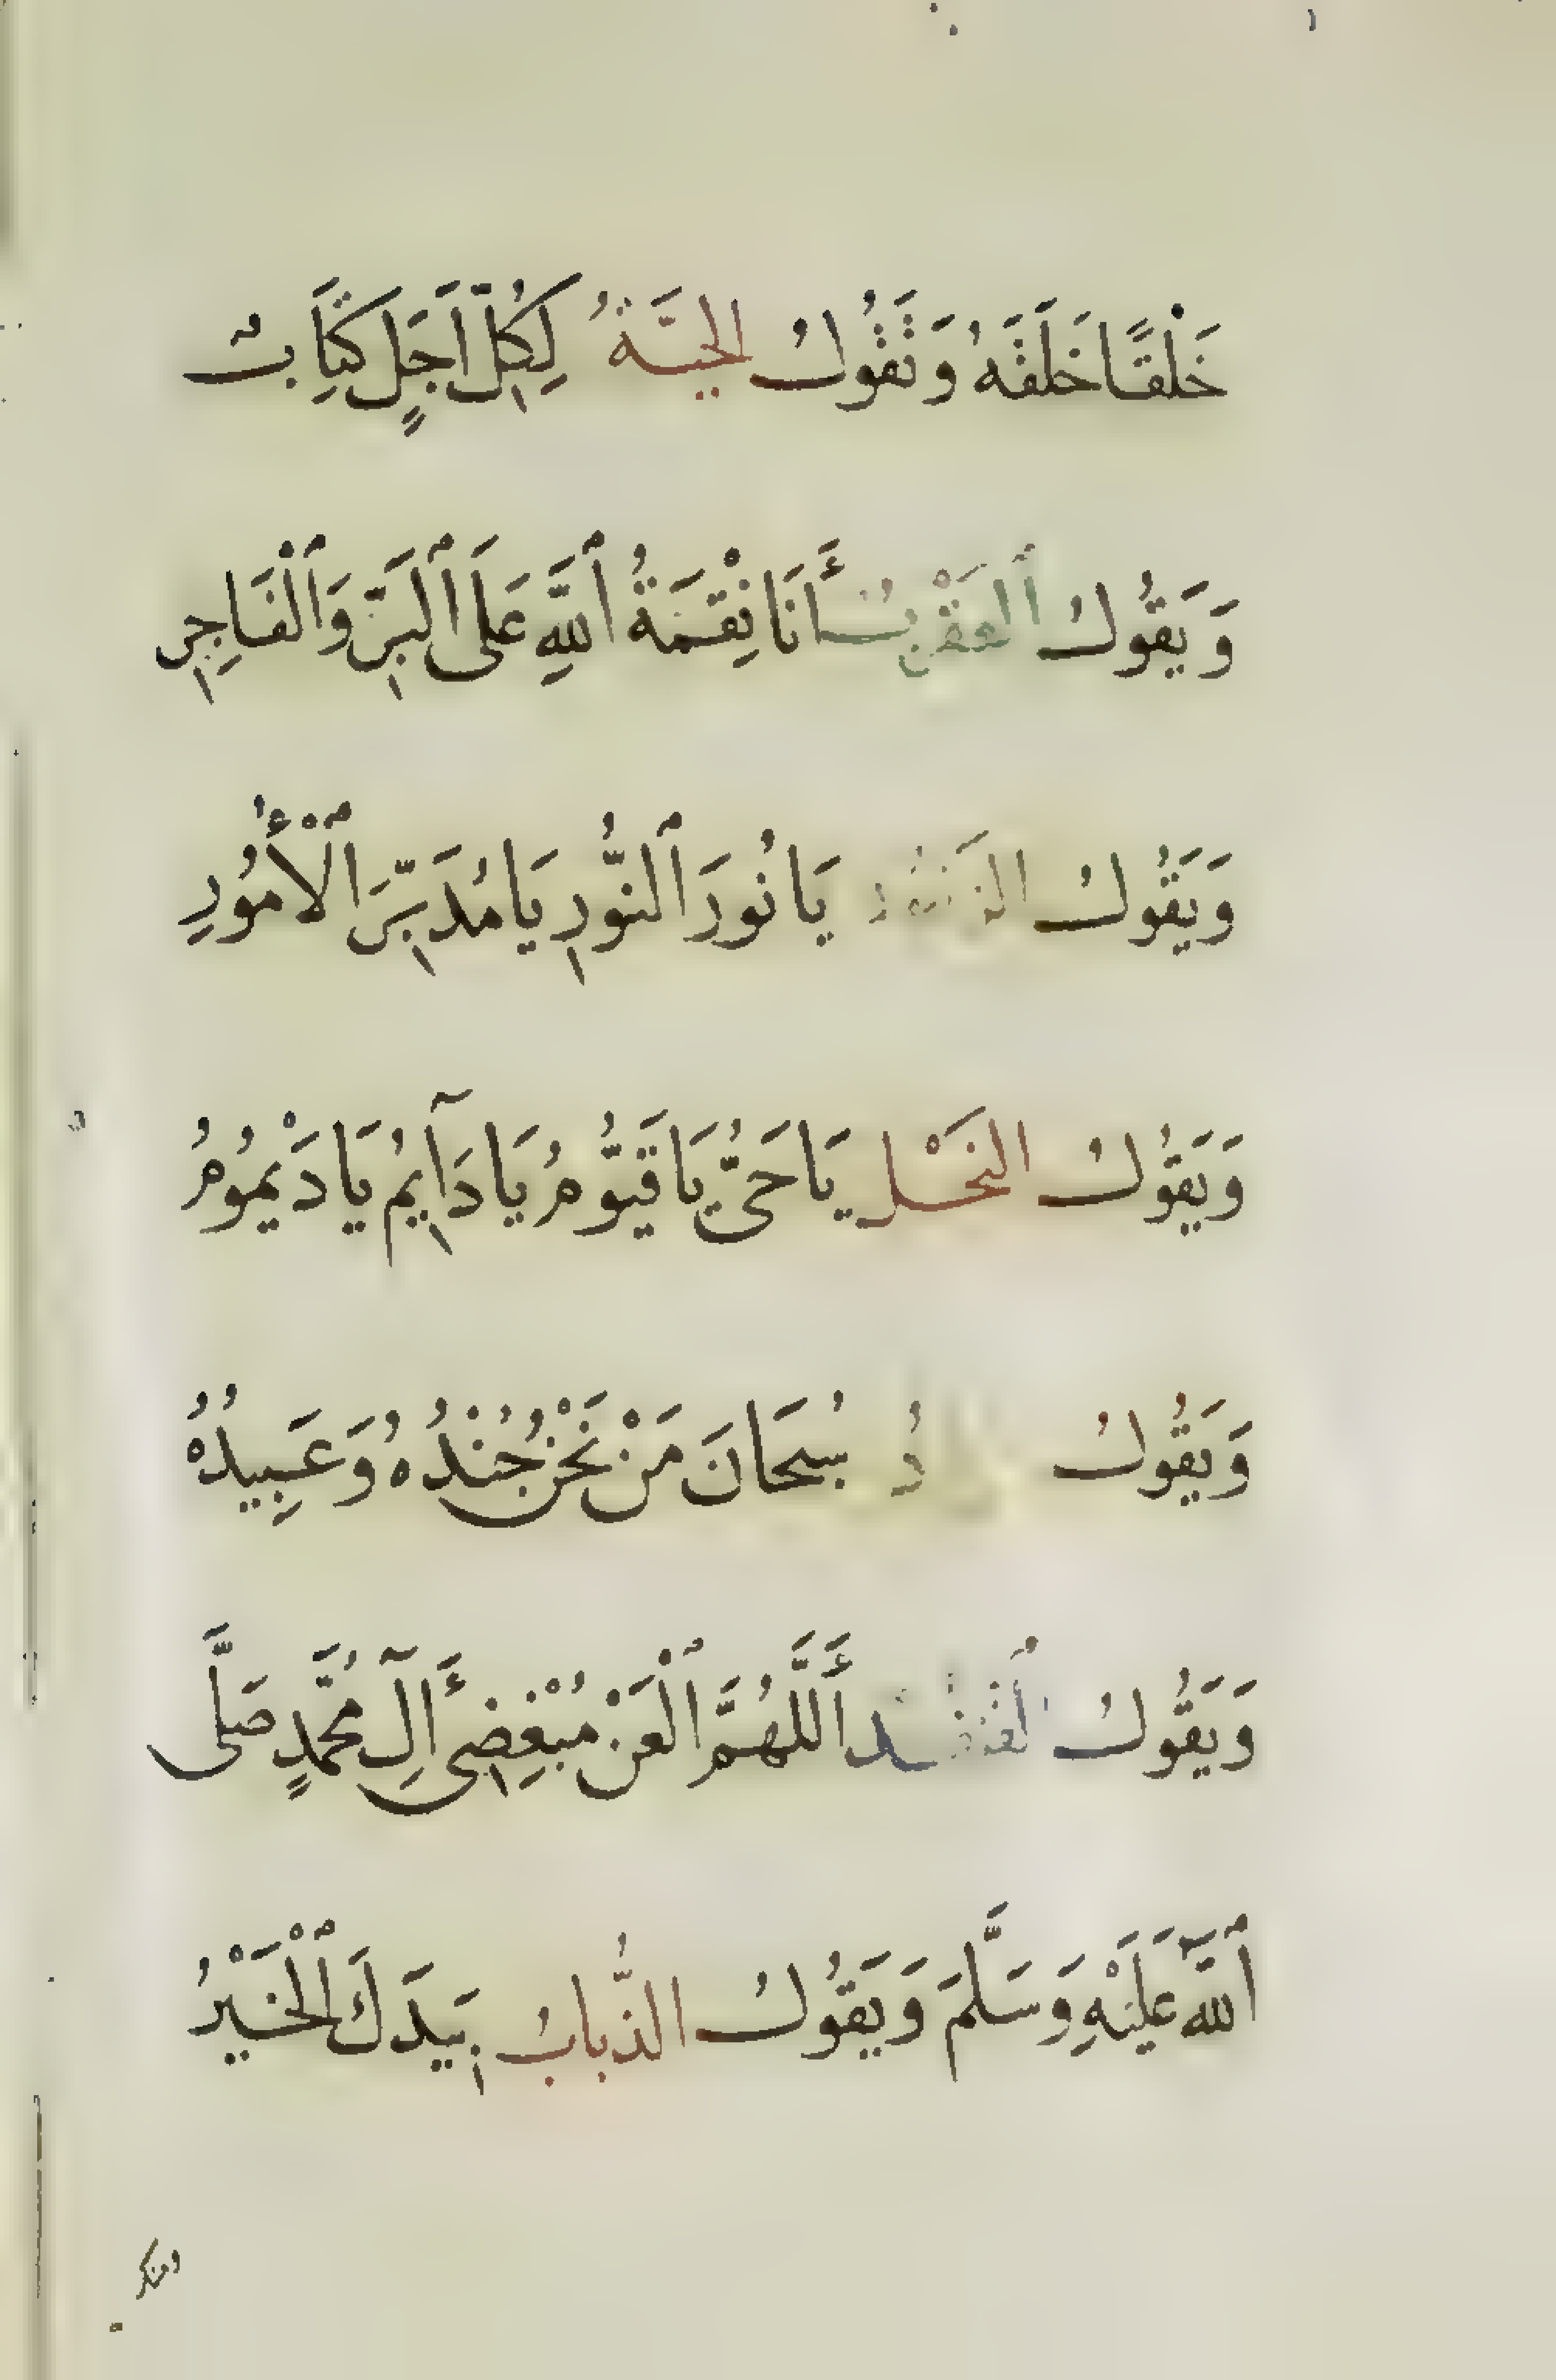 خَلْقًا خَلَقَهُ وَتَقُولُ الحَيَّةُ لِكُلِّ أَجَلٍ كِتَابٌ
وَيَقُولُ ٱلعَقْرَبُ أَنَا نِقْمَةُ ٱللَّهِ عَلَى ٱلبَرِّ وَٱلْفَاجِرِ
وَيَقُولُ الزَنبُور يَا نُورَ ٱلنُّورِ يَا مُدَبِّرَ ٱلْأُمُورِ
وَيَقُولُ النَحْل يَا حَىُّ يَا قَيُّومُ يَا دَآيِمُ يَا دَيْمُومُ
وَيَقُولُ سُبحَانَ مَنْ نَحْنُ جُنْدُهُ وَعَبِيدُهُ
وَيَقُولُ ٱلقُنفُد أَللَّهُمَّ ٱلْعَنْ مُبْغِضِى آلِ مُحَمَّدٍ صَلَّى
ٱللَّهُ عَلَيْهِ وَسَلَّمَ وَيَقُولُ الذُّبابُ بِيَدِكَ ٱلْخَيْرُ